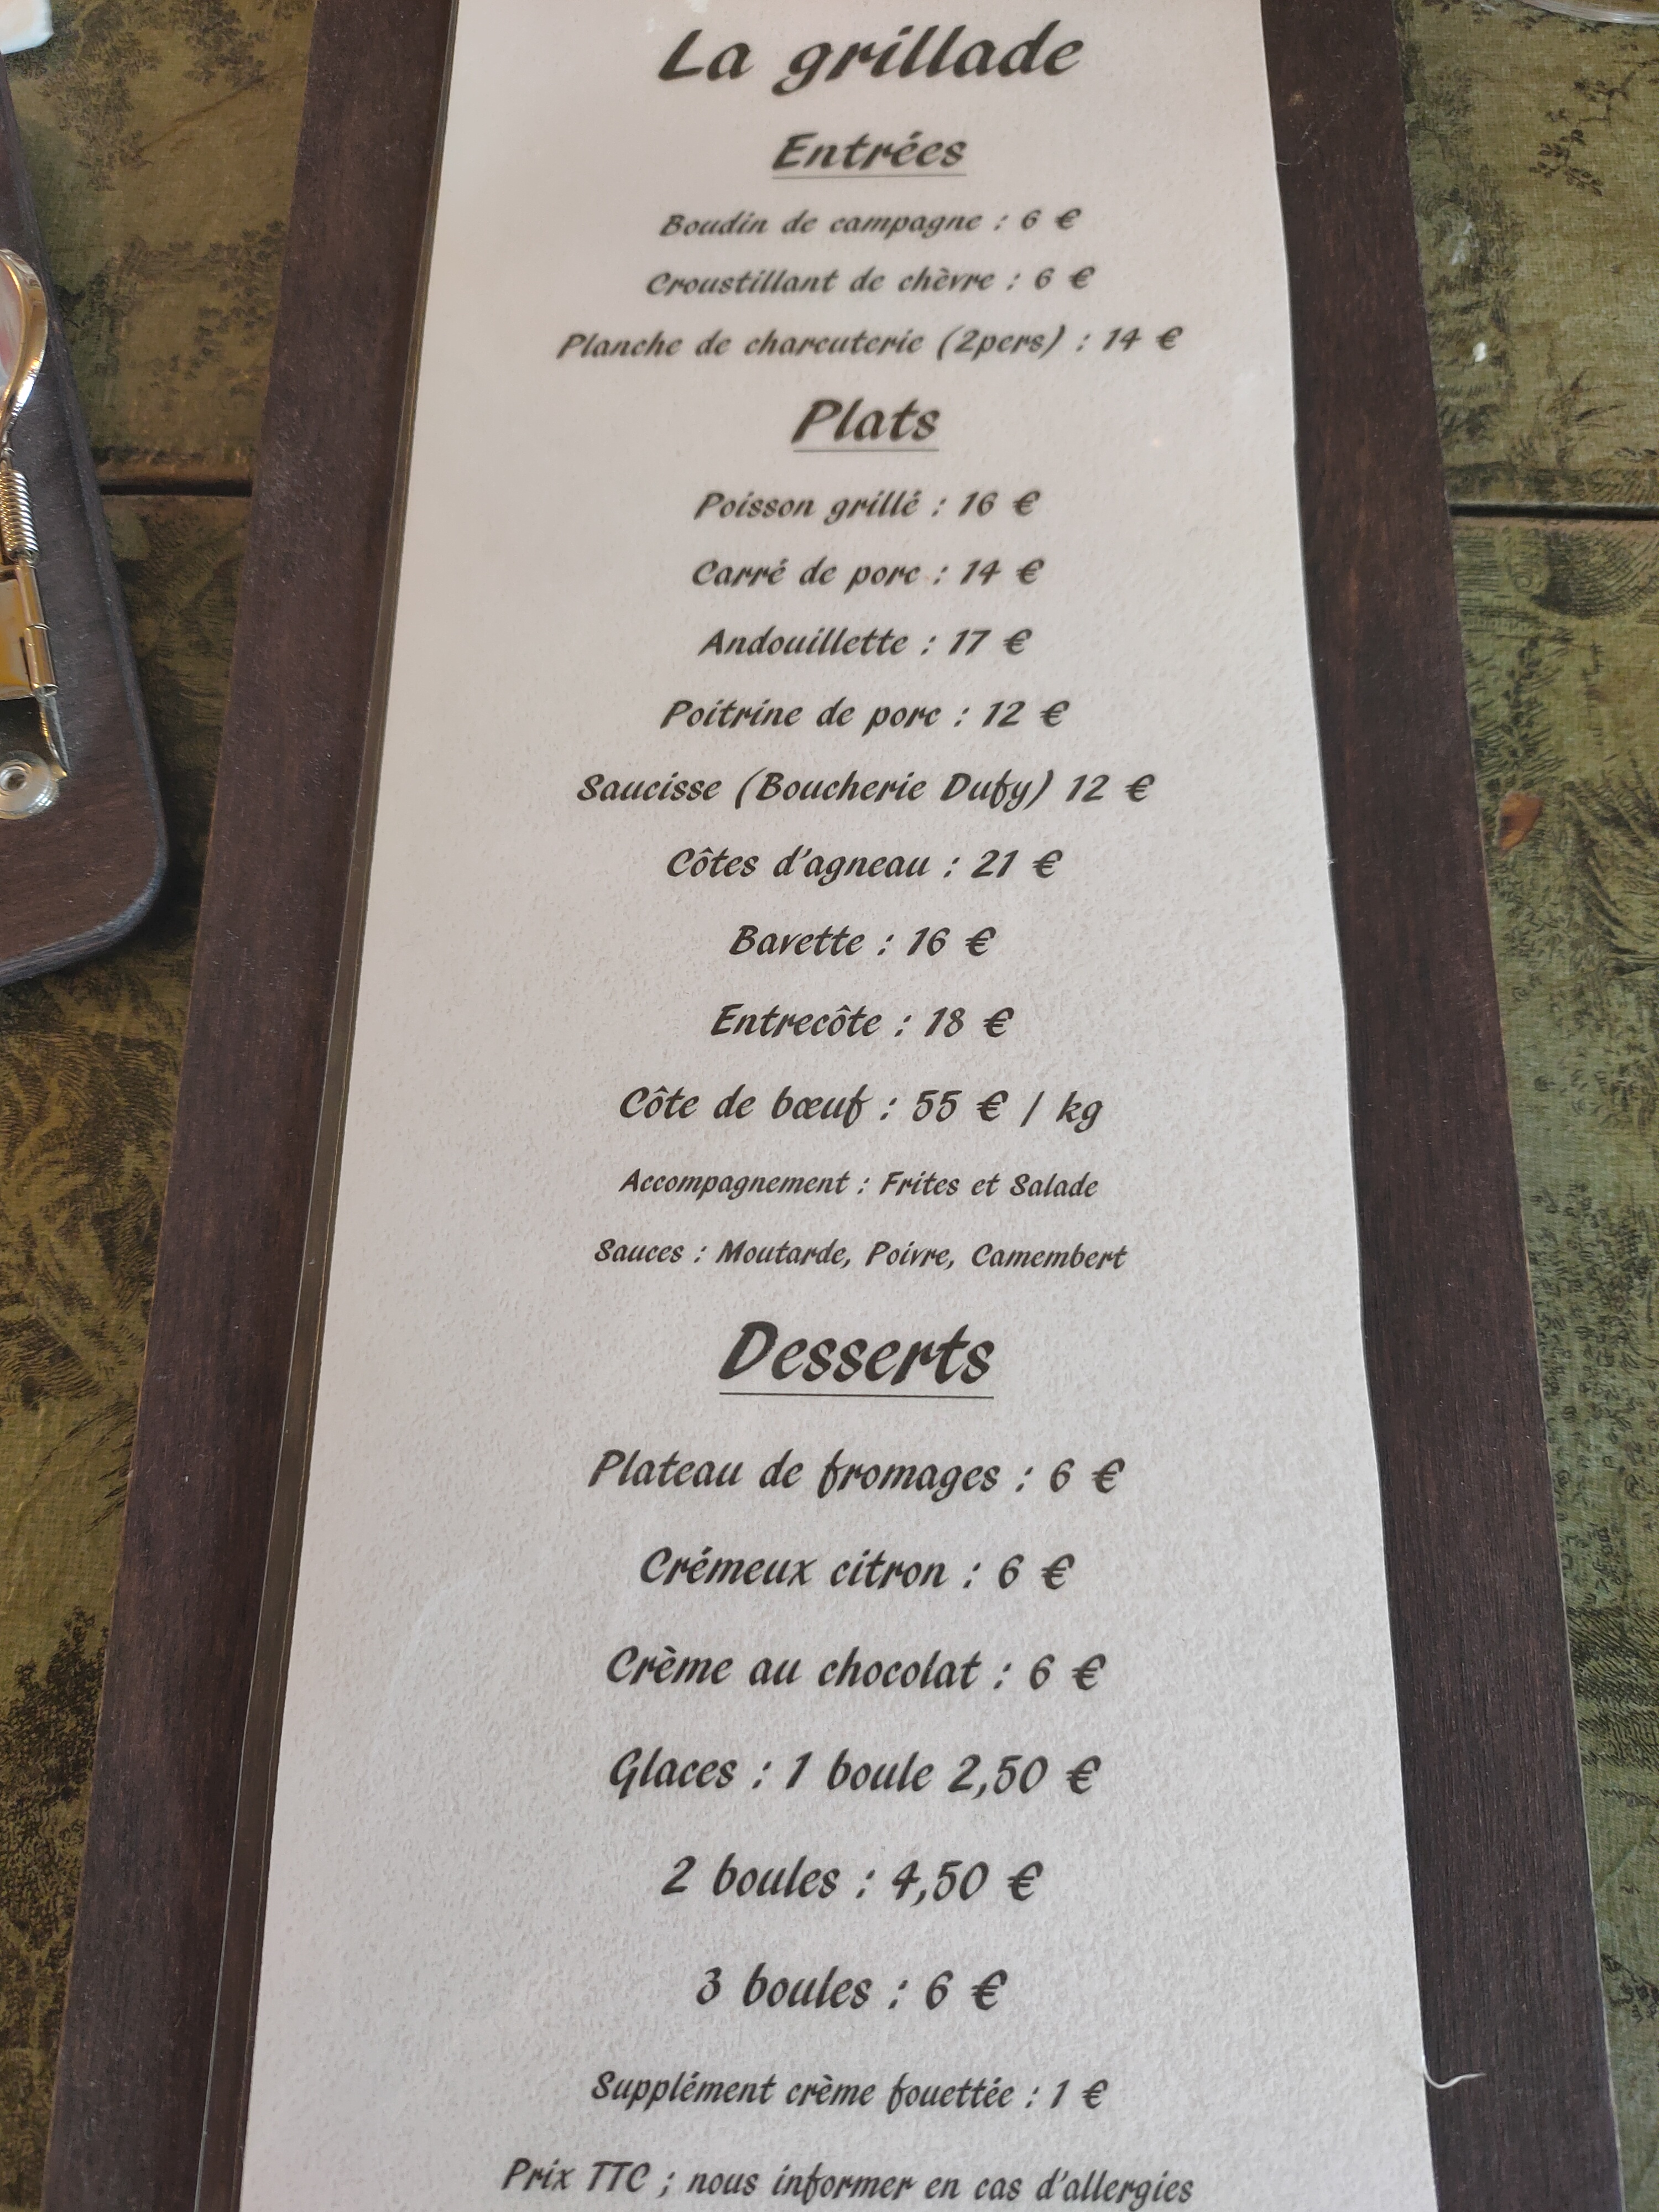 La grillade
Entrées
Boudin de campagne : 6 €
Croustillant de chèvre : 6 €
Planche de charcuterie (2pers) : 14 €
Plats
Poisson grillé : 16 €
Carré de porc : 14 €
Andouillette : 17 €
Poitrine de porc : 12 €
Saucisse (Boucherie Dufy) 12 €
Côtes d'agneau : 21 €
Bavette : 16 €
Entrecôte : 18 €
Côte de bœuf : 55 € / kg
Accompagnement : Frites et Salade
Sauces : Moutarde, Poivre, Camembert
Desserts
Plateau de fromages : 6 €
Crémeux citron : 6 €
Crème au chocolat : 6 €
Glaces : 1 boule 2,50 €
2 boules : 4,50 €
3 boules : 6 €
Supplément crème fouettée : 1 €
Prix TTC ; nous informer en cas d'allergies